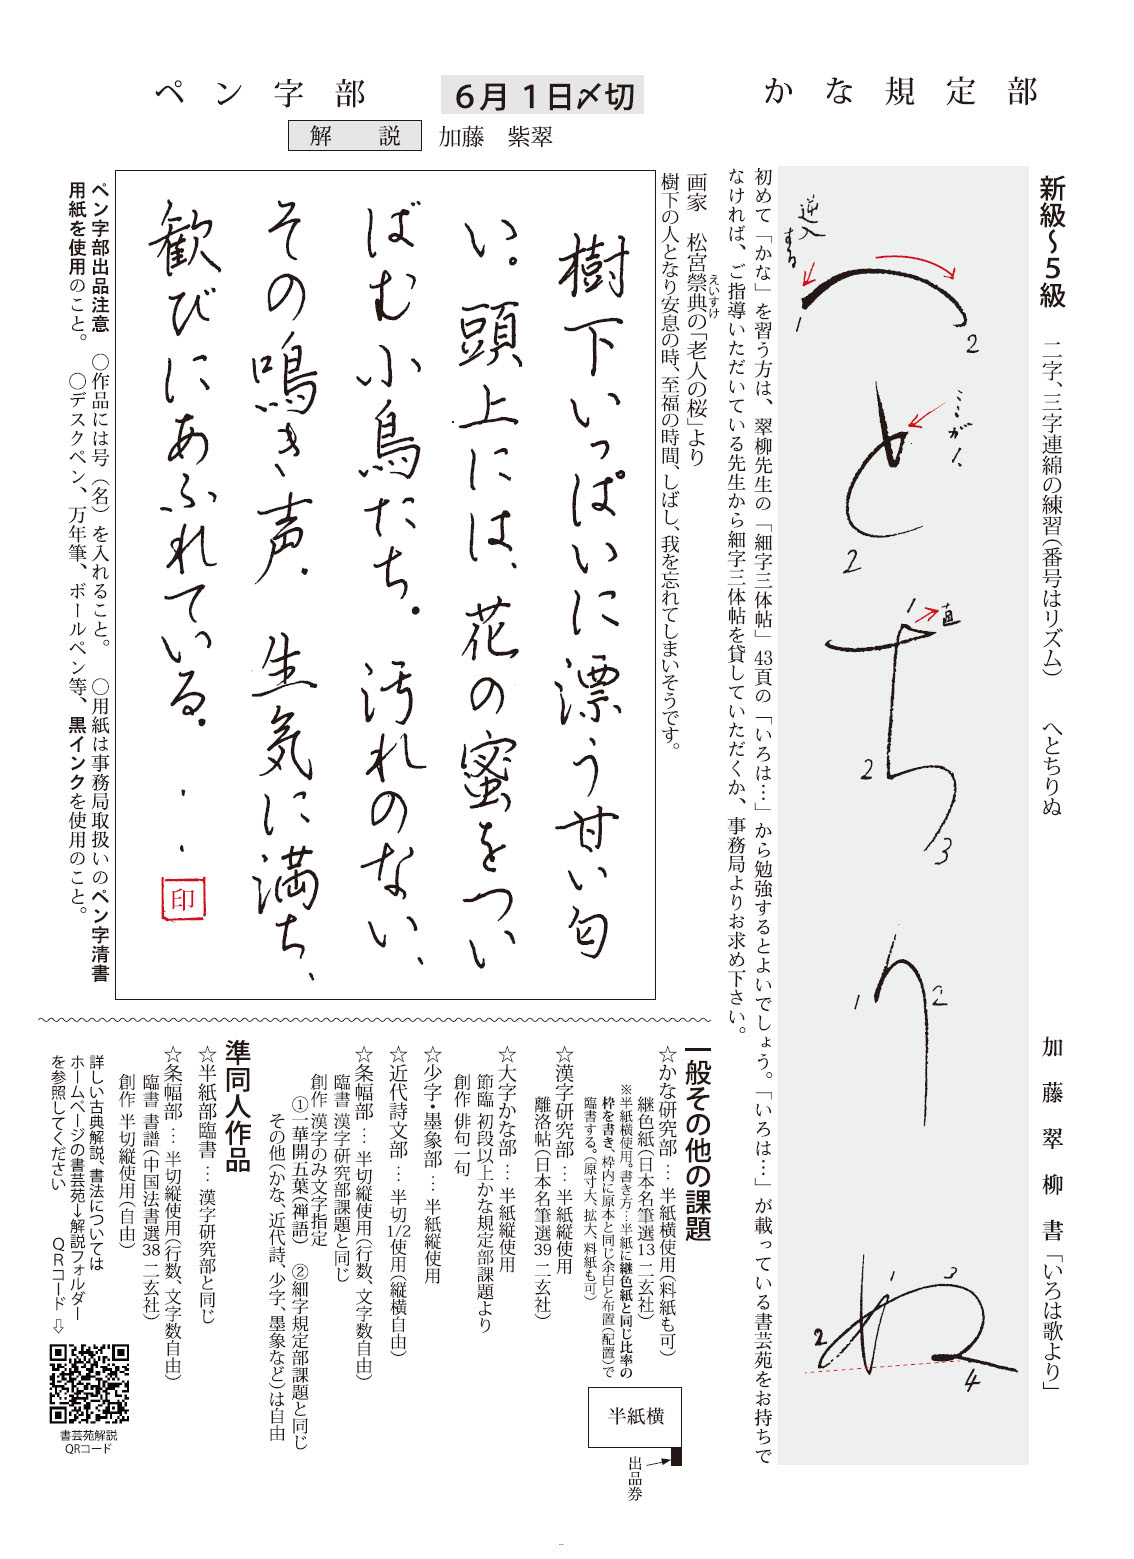 かな規定部
新級〜5級　二字、三字連綿の練習(番号はリズム)　へとちりぬ　加藤翠柳書「いろは歌より」
逆入する
1
2
と
2
1
直
2
3
り
1
2
ぬ
1
2
3
4
初めて「かな」を習う方は、翠柳先生の「細字三体帖」43頁の「いろは…」から勉強するとよいでしょう。「いろは…」が載っている書芸苑をお持ちで
なければ、ご指導いただいている先生から細字三体帖を貸していただくか、事務局よりお求め下さい。
6月1日〆切
ペン字部
解説　加藤　紫翠
画家　松宮榮典の「老人の桜」より
えいすけ
樹下の人となり安息の時、至福の時間、しばし、我を忘れてしまいそうです。
樹下いっぱいに漂う甘い匂
い。頭上には、花の蜜をつい
ばむ小鳥たち。汚れのない、
その鳴き声。生気に満ち、
歓びにあふれている。
印
ペン字部出品注意　○作品には号(名)を入れること。　○用紙は事務局取扱いのペン字清書
用紙を使用のこと。　○デスクペン、万年筆、ボールペン等、黒インクを使用のこと。
一般その他の課題
☆かな研究部…半紙横使用(料紙も可)
継色紙(日本名筆選13 二玄社)
※半紙横使用。書き方…半紙に継色紙と同じ比率の
枠を書き、枠内に原本と同じ余白と布置(配置)で
臨書する。(原寸大、拡大、料紙も可)
半紙横
出品券
☆漢字研究部…半紙縦使用
離洛帖(日本名筆選39 二玄社)
☆大字かな部…半紙縦使用
節臨 初段以上かな規定部課題より
創作 俳句一句
☆少字・墨象部…半紙縦使用
☆近代詩文部…半切1/2使用(縦横自由)
☆条幅部…半切縦使用(行数、文字数自由)
臨書 漢字研究部課題と同じ
創作 漢字のみ文字指定
①一華開五葉(禅語)　②細字規定部課題と同じ
その他(かな、近代詩、少字、墨象など)は自由
準同人作品
☆半紙部臨書…漢字研究部と同じ
☆条幅部…半切縦使用(行数、文字数自由)
臨書 書譜(中国法書選38 二玄社)
創作 半切縦使用(自由)
詳しい古典解説、書法については
ホームページの書芸苑→解説フォルダー
を参照してください　QRコード⇨
書芸苑解説
QRコード